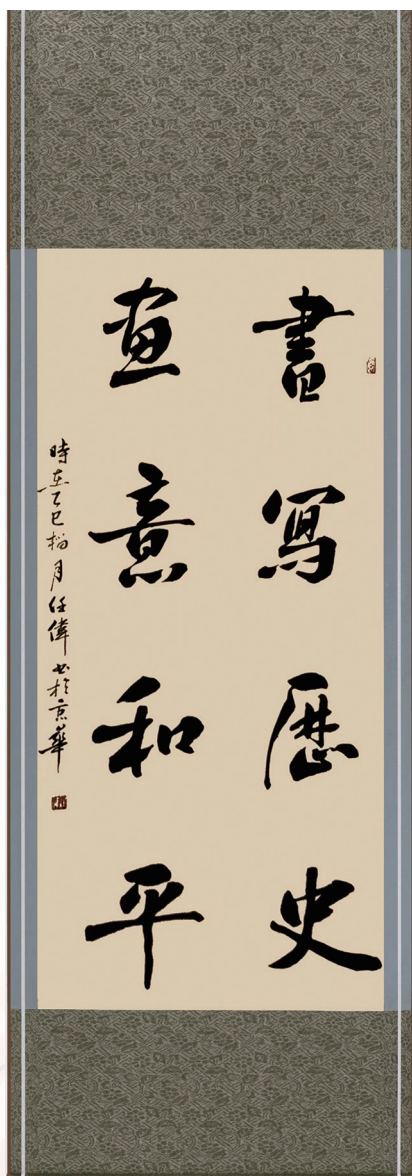 書寫歷史
畫意和平
時在乙巳榴月任偉书於京華